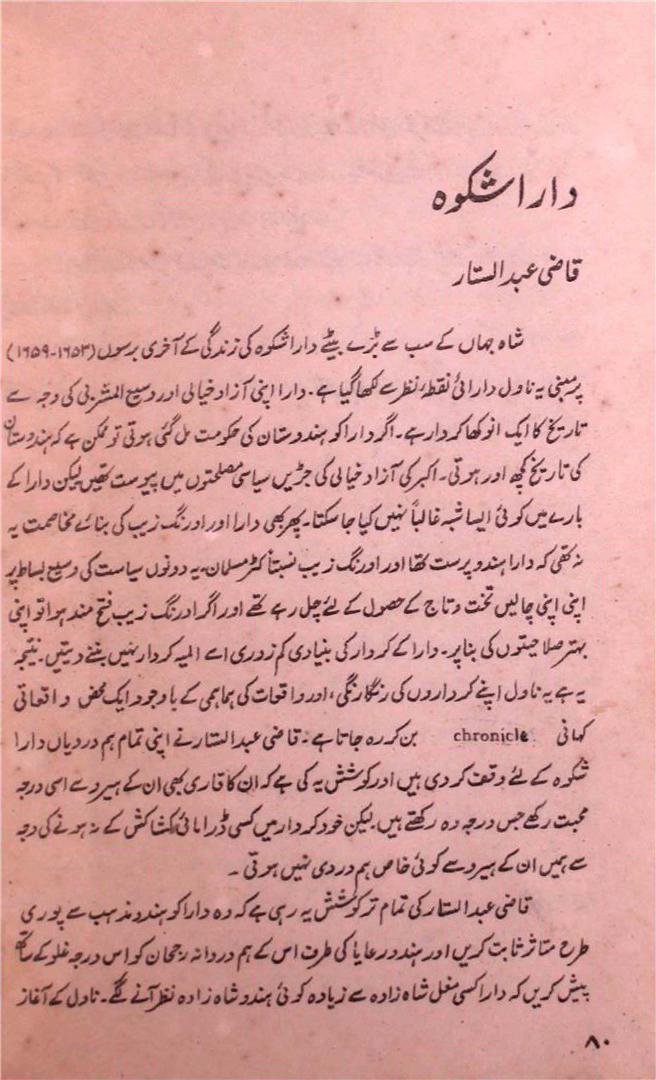 دارا شکوہ
قاضی عبد الستار
شاہ جہاں کے سب سے بڑے بیٹے دارا شکوہ کی زندگی کے آخری برسوں (۱۶۵۳-۱۶۵۹)
پر مبنی یہ ناول دارائی نقطۂ نظر سے لکھا گیا ہے۔ دارا اپنی آزاد خیالی اور وسیع المشربی کی وجہ سے
تاریخ کا ایک انوکھا کردار ہے۔ اگر دارا کو ہندوستان کی حکومت مل گئی ہوتی تو ممکن ہے کہ ہندوستان
کی تاریخ کچھ اور ہوتی۔ اکبر کی آزاد خیالی کی جڑیں سیاسی مصلحتوں میں پیوست تھیں لیکن دارا کے
بارے میں کوئی ایسا شبہ غالباً نہیں کیا جا سکتا۔ پھر بھی دارا اور اورنگ زیب کی بنائے مخاصمت یہ
نہ تھی کہ دارا ہندو پرست تھا اور اورنگ زیب نسبتاً کٹر مسلمان۔ یہ دونوں سیاست کی وسیع بساط پر
اپنی اپنی چالیں تخت و تاج کے حصول کے لئے چل رہے تھے اور اگر اورنگ زیب فتح مند ہوا تو اپنی
بہتر صلاحیتوں کی بنا پر۔ دارا کے کردار کی بنیادی کم زوری اسے المیہ کردار نہیں بننے دیتیں۔ نتیجہ
یہ ہے یہ ناول اپنے کرداروں کی رنگا رنگی، اور واقعات کی ہماہمی کے باوجود ایک محض واقعاتی
کہانی chronicle بن کر رہ جاتا ہے۔ قاضی عبد الستار نے اپنی تمام ہم دردیاں دارا
شکوہ کے لئے وقف کر دی ہیں اور کوشش یہ کی ہے کہ ان کا قاری بھی ان کے ہیرو سے اسی درجہ
محبت رکھے جس درجہ وہ رکھتے ہیں لیکن خود کردار میں کسی ڈرامائی کشاکش کے نہ ہونے کی وجہ
سے ہمیں ان کے ہیرو سے کوئی خاص ہم دردی نہیں ہوتی۔
قاضی عبد الستار کی تمام تر کوشش یہ رہی ہے کہ وہ دارا کو ہندو مذہب سے پوری
طرح متاثر ثابت کریں اور ہندو رعایا کی طرف اس کے ہم دردانہ رجحان کو اس درجہ غلو کے ساتھ
پیش کریں کہ دارا کسی مغل شاہ زادہ سے زیادہ کوئی ہندو شاہ زادہ نظر آنے لگے۔ ناول کے آغاز
۸۰